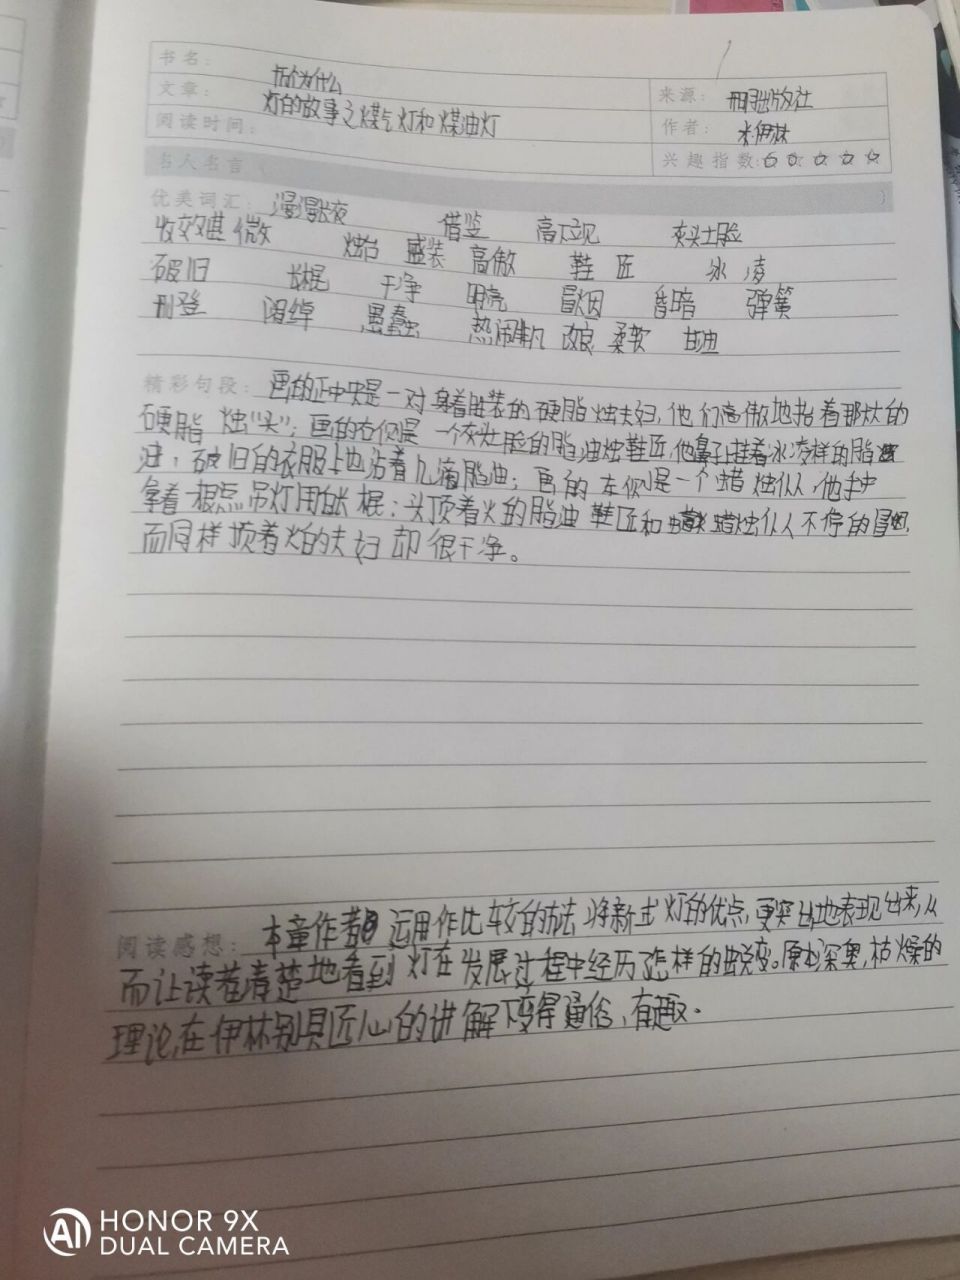 书名：十万个为什么
文章：灯的故事之煤气灯和煤油灯
来源：
阅读时间：
作者：米·伊林
兴趣指数：☆ ☆ ☆ ☆ ☆
名人名言
优美词汇：漫漫长夜 借鉴 高下立见 灰头土脸
收效甚微 烛台 盛装 高傲 鞋匠 冰凌
破旧 长棍 干净 明亮 冒烟 昏暗 弹簧
刊登 阔绰 愚蠢 热闹非凡 改良 柔软 甘油
精彩句段：画的正中央是一对身着盛装的硬脂烛夫妇，他们高傲地抬着那炫的
硬脂烛“头”；画的右侧是一个灰灶脸的脂油烛鞋匠，他鼻子上挂着冰凌样的脂
油，破旧的衣服上也沾着几滴脂油；画的左侧是一个蜡烛仆人，他手中
拿着一根点吊灯用的长棍；头顶着火的脂油鞋匠和蜡烛仆人不停的冒烟
而同样顶着火的夫妇却很干净。
阅读感想：本章作者运用作比较的方法将新式灯的优点，更突出地表现出来，从
而让读者清楚地看到灯在发展过程中经历了怎样的蜕变。原本深奥，枯燥的
理论，在伊林别具匠心的讲解下变得通俗，有趣。
HONOR 9X
DUAL CAMERA